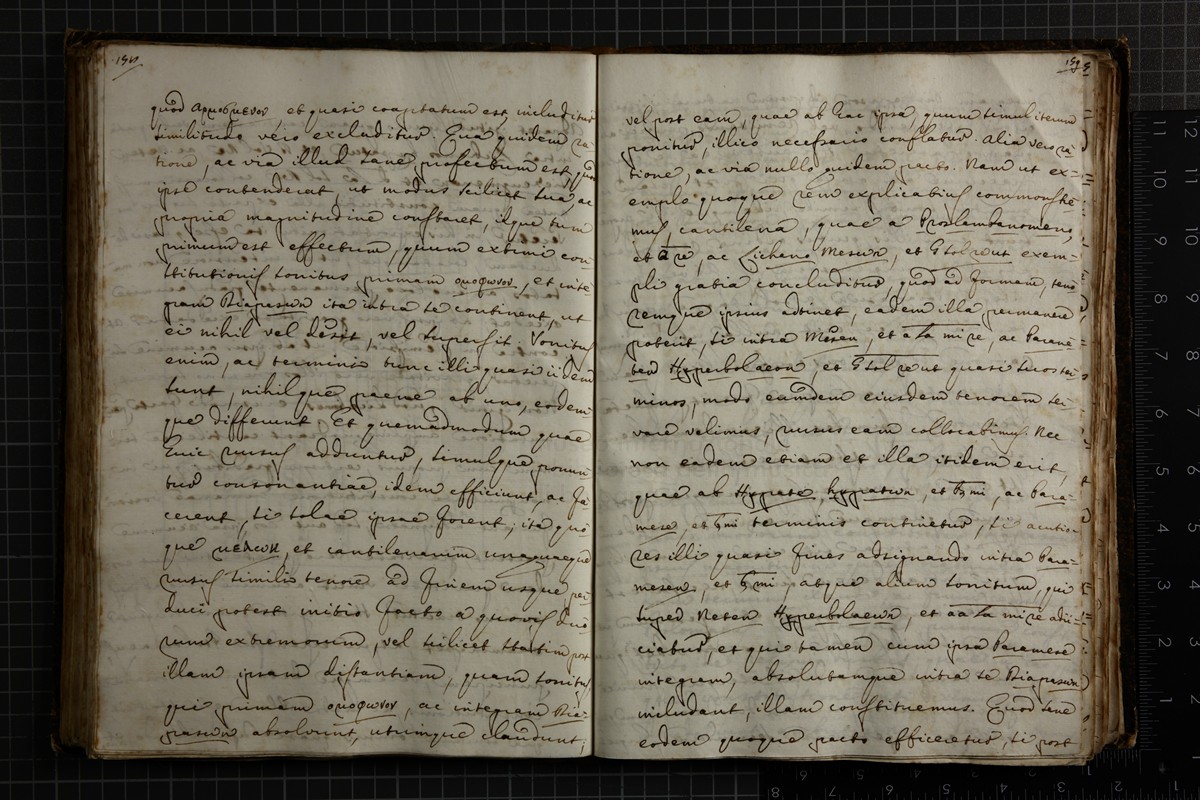 194
quod αρμοσμενον et quasi coagitatum est, includitur
similitudo vero excluditur. Qua quidem ra-
tione, ac via illud sane profectum est, quod
ipse contenderat, ut modus scilicet sua, ac
propria magnitudine constaret, idque tum
primum est effectum, quum extimi con-
stitutionis sonitus primam ομοφωνον, et inte-
gram Diapasωn ita intra se continent, ut
ei nihil vel desit, vel supersit. Sonitus
enim, ac termini tunc illi quasi iidem
sunt, nihilque paene ab uno, eodem-
que differunt. Et quemadmodum quae
huic rursus adduntur, simulque ponun-
tur consonantiae, idem efficiunt, ac fa-
cerent, si solae ipsae forent; ita quo-
que μελωn, et cantilenarum unaquaeque
rursus simili tenore ad finem usque per-
duci potest initio facto a quovis duo-
rum extremorum, vel scilicet statim post
illam ipsam distantiam, quam sonitus,
qui primam ομοφωνον, ac integram Dia-
pasωn absolvunt, utrimque claudunt;
195
vel post eam, quae ab hac ipsa quum simul iterum
ponitur, illico necessario conflatur. Alia vero ra-
tione, ac via nullo quidem pacto. Nam ut ex-
emplo quoque rem explicatius commonstre-
mus, cantilena, quae a Proslambanomeno,
et a re, ac Lichano Mesωn, et G sol re ut exem-
pli gratia concluditur, quod ad formam, teno-
remque ipsius adtinet, eadem illa permanere
poterit, si intra Mesen, et a la mi re, ac Parane-
ten Hyperbolaeωn, et G sol re ut quasi suos ter-
minos, modo eamdem eiusdem tenorem ser-
vare velimus, rursus eam collocabimus. Nec
non eadem etiam et illa itidem erit,
quae ab Hypate Hypatωn, et ♮ mi, ac Para-
mese, et ♮ mi terminis continetur, si acutio-
res illi quasi fines adsignando intra Para-
mesen, et ♮ mi, atque alium sonitum, qui
super Neten Hyperbolaeωn, et aa la mi re adii-
ciatur, et qui tamen cum ipsa Paramese
integram, absolutamque intra se Diapasωn
includant, illam constituemus. Quod sane
eodem quoque pacto efficeretur, si post